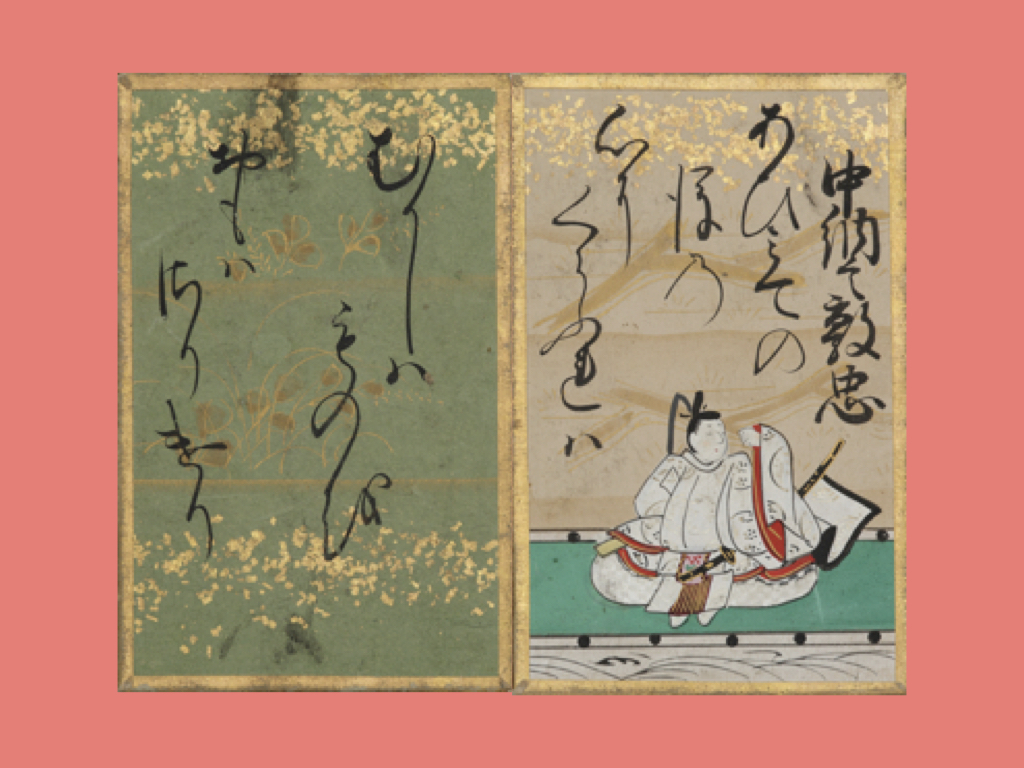 中納言敦忠
あひみての
後の
心に
くらふれハ
むかしハ
ものを
おもハ
さりけり